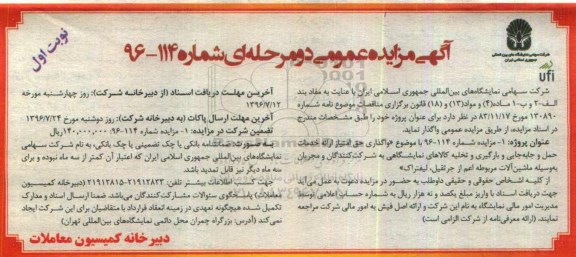 آگهی مزایده عمومی دو مرحله‌ای شماره ۱۱۴-۹۶
نوبت اول
شرکت سهامی نمایشگاه‌های بین‌المللی
جمهوری اسلامی ایران
ufi
شرکت سهامی نمایشگاه‌های بین‌المللی جمهوری اسلامی ایران با عنایت به مفاد بند
الف-۲ و ب-۱ ماده(۴) و مواد(۱۳) و (۱۸) قانون برگزاری مناقصات موضوع نامه شماره
۱۳۰۸۹۰ مورخ ۸۳/۱۱/۱۷ در نظر دارد برای عنوان پروژه خود را طبق مشخصات مندرج
در اسناد مزایده، از طریق مزایده عمومی واگذار نماید.
عنوان پروژه: ۱- مزایده شماره ۱۱۴-۹۶ با موضوع «واگذاری حق امتیاز ارائه خدمات
حمل و جابه‌جایی و بارگیری و تخلیه کالاهای نمایشگاهی به شرکت‌کنندگان و مجریان
به‌وسیله ماشین‌آلات مربوطه اعم از جرثقیل، لیفتراک»
از کلیه اشخاص حقوقی و حقیقی ذوطلب به حضور در مزایده دعوت به عمل می‌آید
جهت دریافت اسناد با واریز مبلغ یکصد و نه هزار ریال به شماره حساب اعلامی توسط
مدیریت امور مالی نمایشگاه به نام این شرکت و ارائه اصل فیش به امور مالی شرکت مراجعه
نمایند. (ارائه معرفی‌نامه از شرکت الزامی است)
آخرین مهلت دریافت اسناد (از دبیرخانه شرکت): روز چهارشنبه مورخه
۱۳۹۶/۷/۱۲
آخرین مهلت ارسال پاکات (به دبیرخانه شرکت): روز دوشنبه مورخ ۱۳۹۶/۷/۲۴
تضمین شرکت در مزایده: ۱- مزایده شماره ۱۱۴-۹۶: ۱۴۰,۰۰۰,۰۰۰ ریال
به صورت ضمانتنامه بانکی یا چک تضمینی یا چک بانکی، به نام شرکت سهامی
نمایشگاه‌های بین‌المللی جمهوری اسلامی ایران که اعتبار آن کمتر از سه ماه نبوده و برای
سه ماه دیگر نیز قابل تمدید باشد.
جهت کسب اطلاعات بیشتر تلفن: ۲۱۹۱۲۸۳۳-۲۱۹۱۲۸۱۵ (دبیرخانه کمیسیون
معاملات) پاسخگوی سئوالات مشارکت‌کنندگان می‌باشد. ضمنا ارسال اسناد و مدارک
تکمیل شده هیچگونه تعهدی در زمینه انعقاد قرارداد با متقاضیان برای این شرکت ایجاد
نمی‌کند (آدرس: بزرگراه چمران محل دائمی نمایشگاه‌های بین‌المللی تهران)
دبیرخانه کمیسیون معاملات